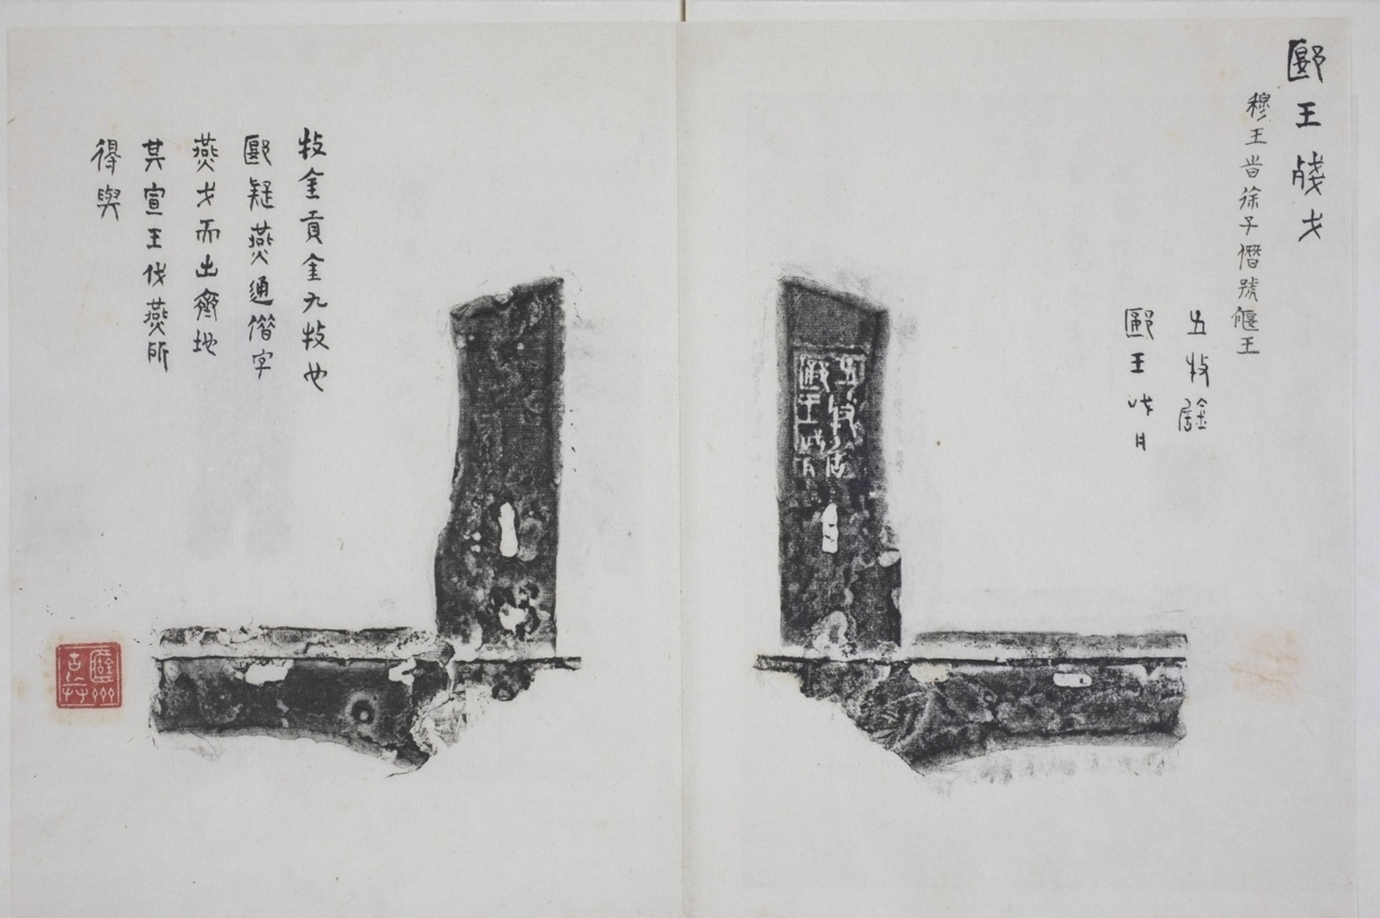 郾王㦰戈
穆王昔徐子僭號偃王
五牧鎋
郾王戊月
牧金貢金九牧也
郾疑燕通借字
燕戈而出齊地
其宣王伐燕所
得與